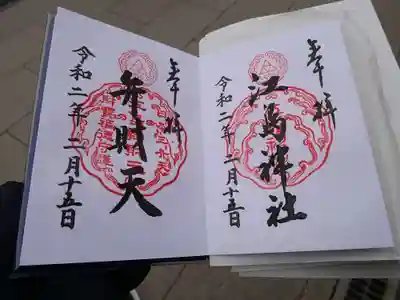 奉拝
江島神社
令和二年二月十五日
奉拝
弁財天
令和二年二月十五日